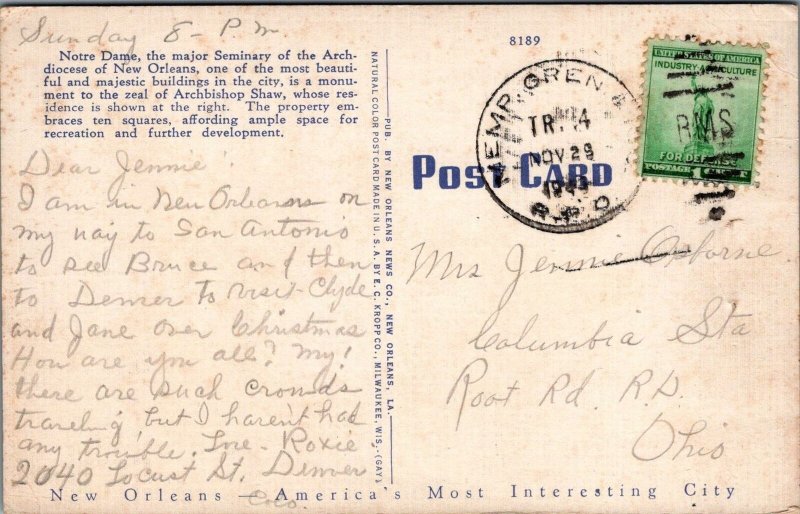 Sunday 8- P.M
Notre Dame, the major Seminary of the Arch-
diocese of New Orleans, one of the most beauti-
ful and majestic buildings in the city, is a monu-
ment to the zeal of Archbishop Shaw, whose res-
idence is shown at the right. The property em-
braces ten squares, affording ample space for
recreation and further development.
Dear Jennie:
I am in New Orleans on
my way to San Antonio
to see Bruce and then
to Denver to visit Clyde
and Jane over Christmas
How are you all? My!
there are such crowds
traveling but I haven't had
any trouble. Love- Roxie
2040 Locust St. Denver
Colo.
PUB. BY NEW ORLEANS NEWS CO., NEW ORLEANS, LA.
NATURAL COLOR POST CARD MADE IN U.S.A. BY E. C. KROPP CO., MILWAUKEE, WIS. (GAY)
8189
POST CARD
MEMP. GREN. &
TR. 4
NOV 29
R.P.O.
UNITED STATES OF AMERICA
INDUSTRY AGRICULTURE
RMS
FOR DEFENSE
POSTAGE
Mrs Jennie Osborne
Columbia Sta
Root Rd. R.D.
Ohio
New Orleans — America's Most Interesting City